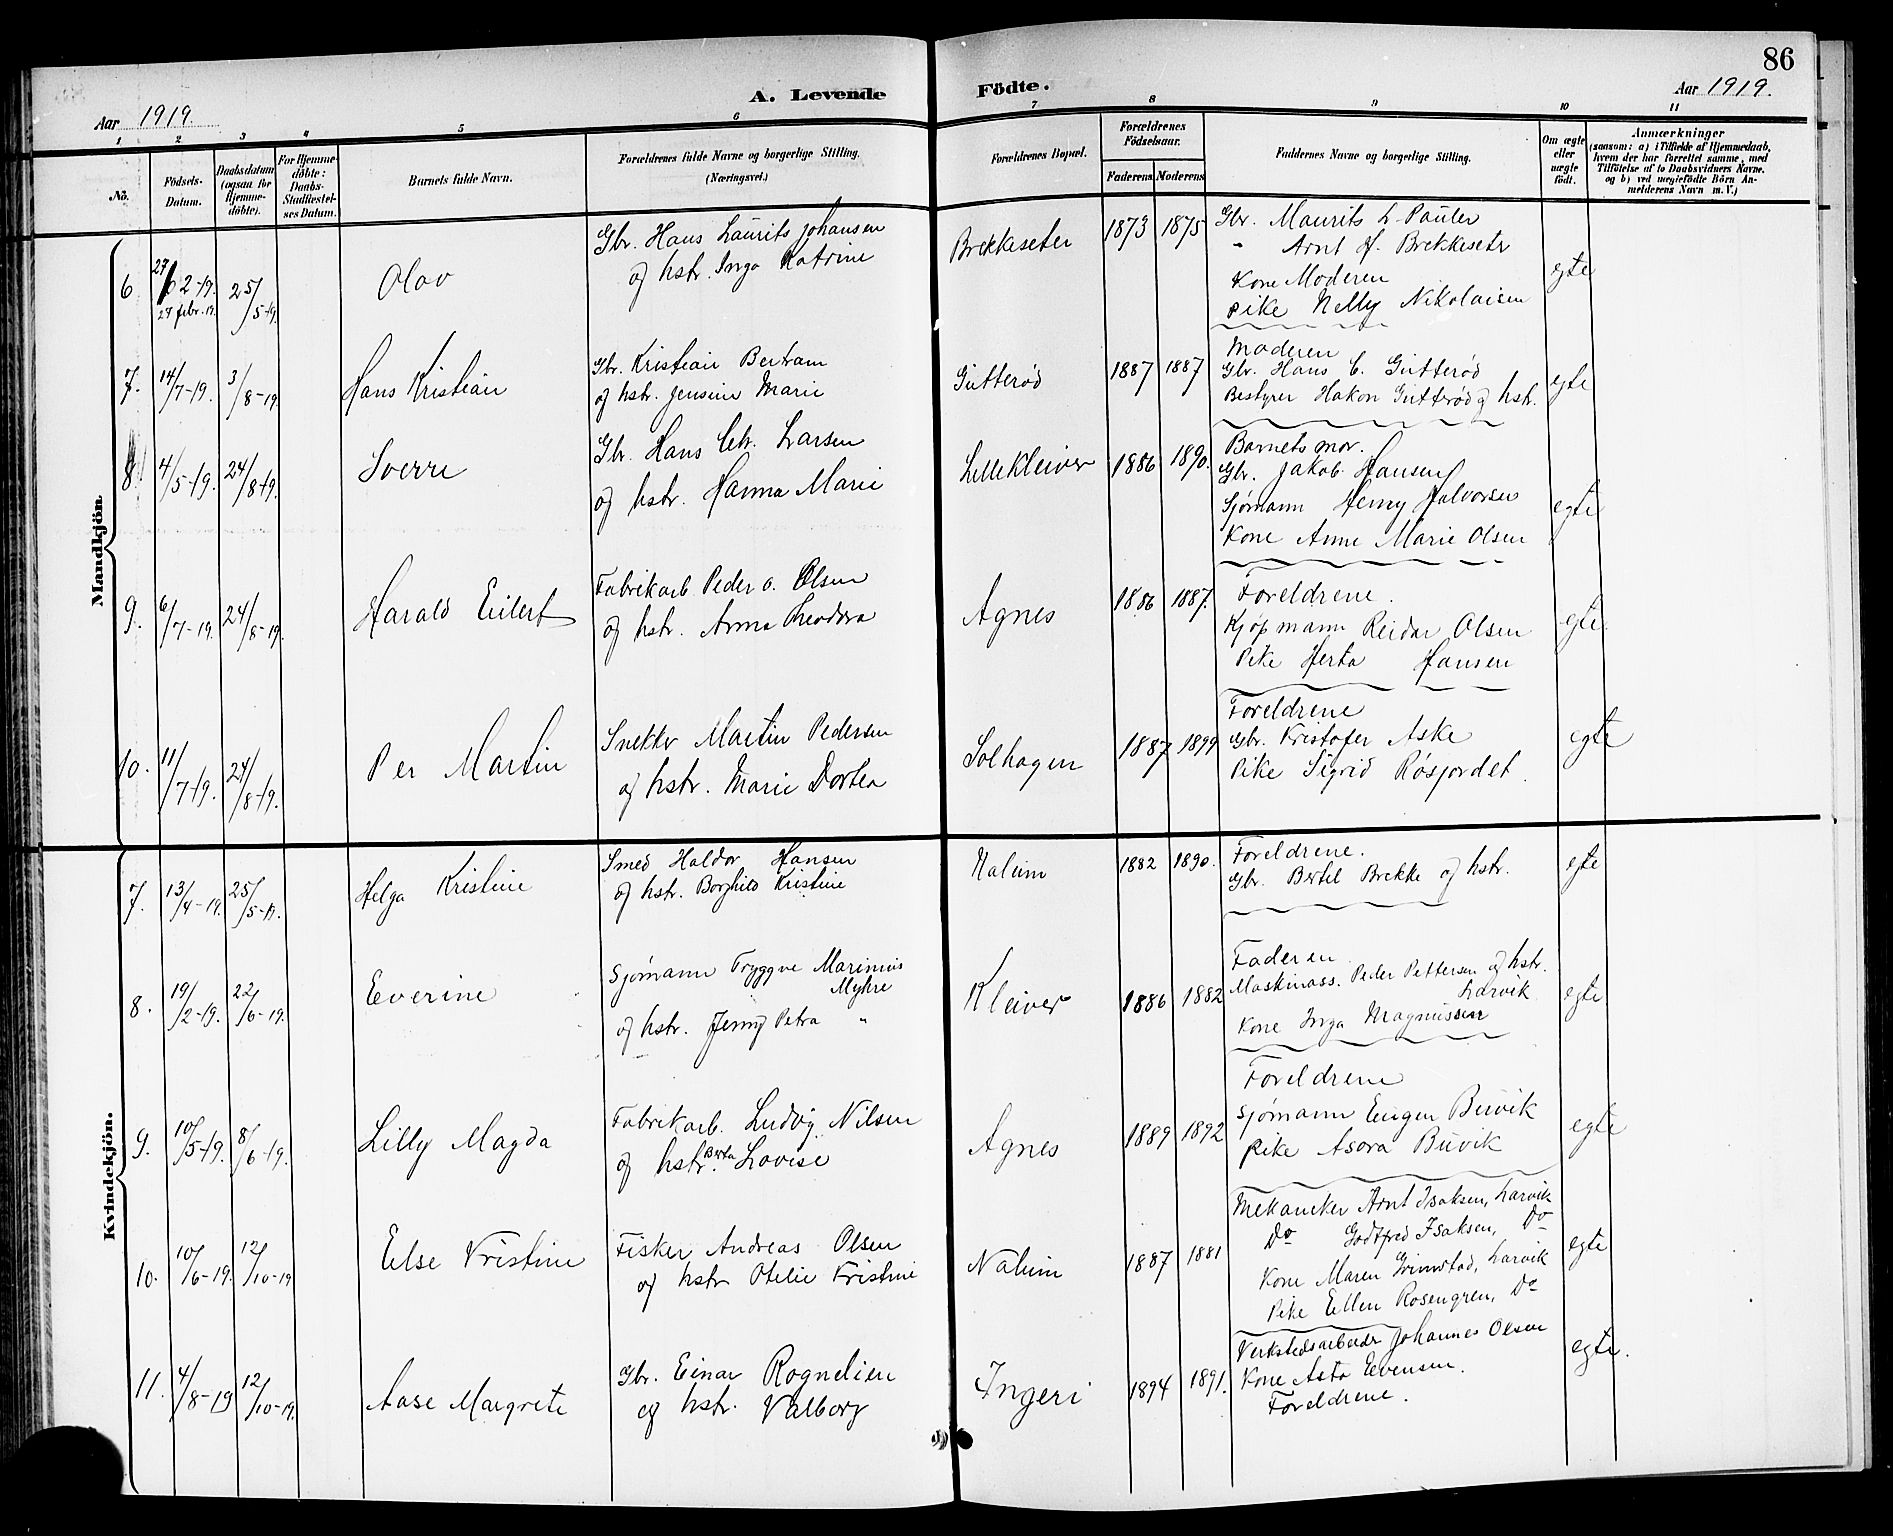 86
A. Levende Födte.
Aar 1919.
Aar 1919.
1 2 3 4 5 6 7 8 9 10 11
No.
Födsels-Datum.
Daabsdatum (ogsaa for Hjemmedöbte).
For Hjemmedöbte: Daabs-Stadfestelses Datum.
Barnets fulde Navn.
Forældrenes fulde Navne og borgerlige Stilling. (Næringsvei.)
Forældrenes Bopæl.
Forældrenes Födselsaar.
Faderens. Moderens.
Faddernes Navne og borgerlige Stilling.
Om ægte eller uægte født.
Anmærkninger
(saasom: a) i Tilfælde af Hjemmedaab, hvem der har forrettet samme, med Tilföielse af to Daabsvidners Navne. og b) ved uægtefödte Börn Anmelderens Navn m. V.)
Mandkjön
6 27/2-19. 27 febr. 19. 25/5-19. Olav
Gbr. Hans Laurits Johansen
og hstr. Inga Katrine
Brekkeseter 1873 1875
Gbr. Maurits L. Pauler
" Arnt H. Brekkeseter
Kone Moderen
Pike Nelly Nikolaisen
egte
7. 14/7-19. 3/8-19 Hans Kristian
Gbr. Kristian Bertram
og hstr. Jensine Marie
Gutterød 1887 1887
Moderen
Gbr. Hans C. Gutterød
Bestyrer Hakon Gutterød og hstr.
egte
8 4/5-19. 24/8-19. Sverre
Gbr. Hans Chr. Larsen
og hstr. Hanna Marie
Lillekleiver 1886 1890.
Barnets mor.
Gbr. Jakob Hansen
Sjømann Henry Halvorsen
Kone Anne Marie Olsen
egte
9. 6/7-19. 24/8-19. Harald Eilert
Fabrikarb. Peder O. Olsen
og hstr. Anna Theodora
Agnes 1886 1887.
Foreldrene.
Kjøpmann Reidar Olsen
Pike Herta Hansen
egte.
10. 11/7-19. 24/8-19. Per Martin
Snekker Martin Pedersen
og hstr. Marie Dortea
Solhagen 1887 1899
Foreldrene
Gbr. Kristofer Aske
Pike Sigrid Røsjordet.
egte
Kvindekjön.
7. 13/4-19. 25/5-19. Helga Kristine
Smed Haldor Hansen
og hstr. Borghild Kristine
Nalum 1882 1890.
Foreldrene.
Gbr. Bertil Brekke og hstr.
egte
8. 19/2-19. 22/6-19. Everine
Sjømann Tryggve Marinius
Myhre
og hstr. Jenny Petra "
Kleiver 1886 1882
Faderen.
Maskinass. Peder Pettersen og hstr.
Larvik
Kone Inga Magnussen
egte
9. 10/5-19. 8/6-19. Lilly Magda
Fabrikarb. Ludvig Nilsen
og hstr. Berta Lovise
Agnes 1889 1892
Foreldrene
Sjømann Eugen Buvik
Pike Asora Buvik
egte
10. 10/6-19. 12/10-19 Else Kristine
Fisker Andreas Olsen
og hstr Otelie Kristine
Nalum 1887 1881
Mekaniker Arnt Isaksen, Larvik
Do Godtfred Isaksen, Do
Kone Maren Grimstad, Larvik
Pike Ellen Rosengren, Do
egte
11. 4/8-19 12/10-19. Aase Margrete
Gbr. Einar Rognelien
og hstr. Valborg
Ingeri 1894 1891.
Verkstedsarbeider Johannes Olsen
Kone Asta Evensen.
Foreldrene.
egte.